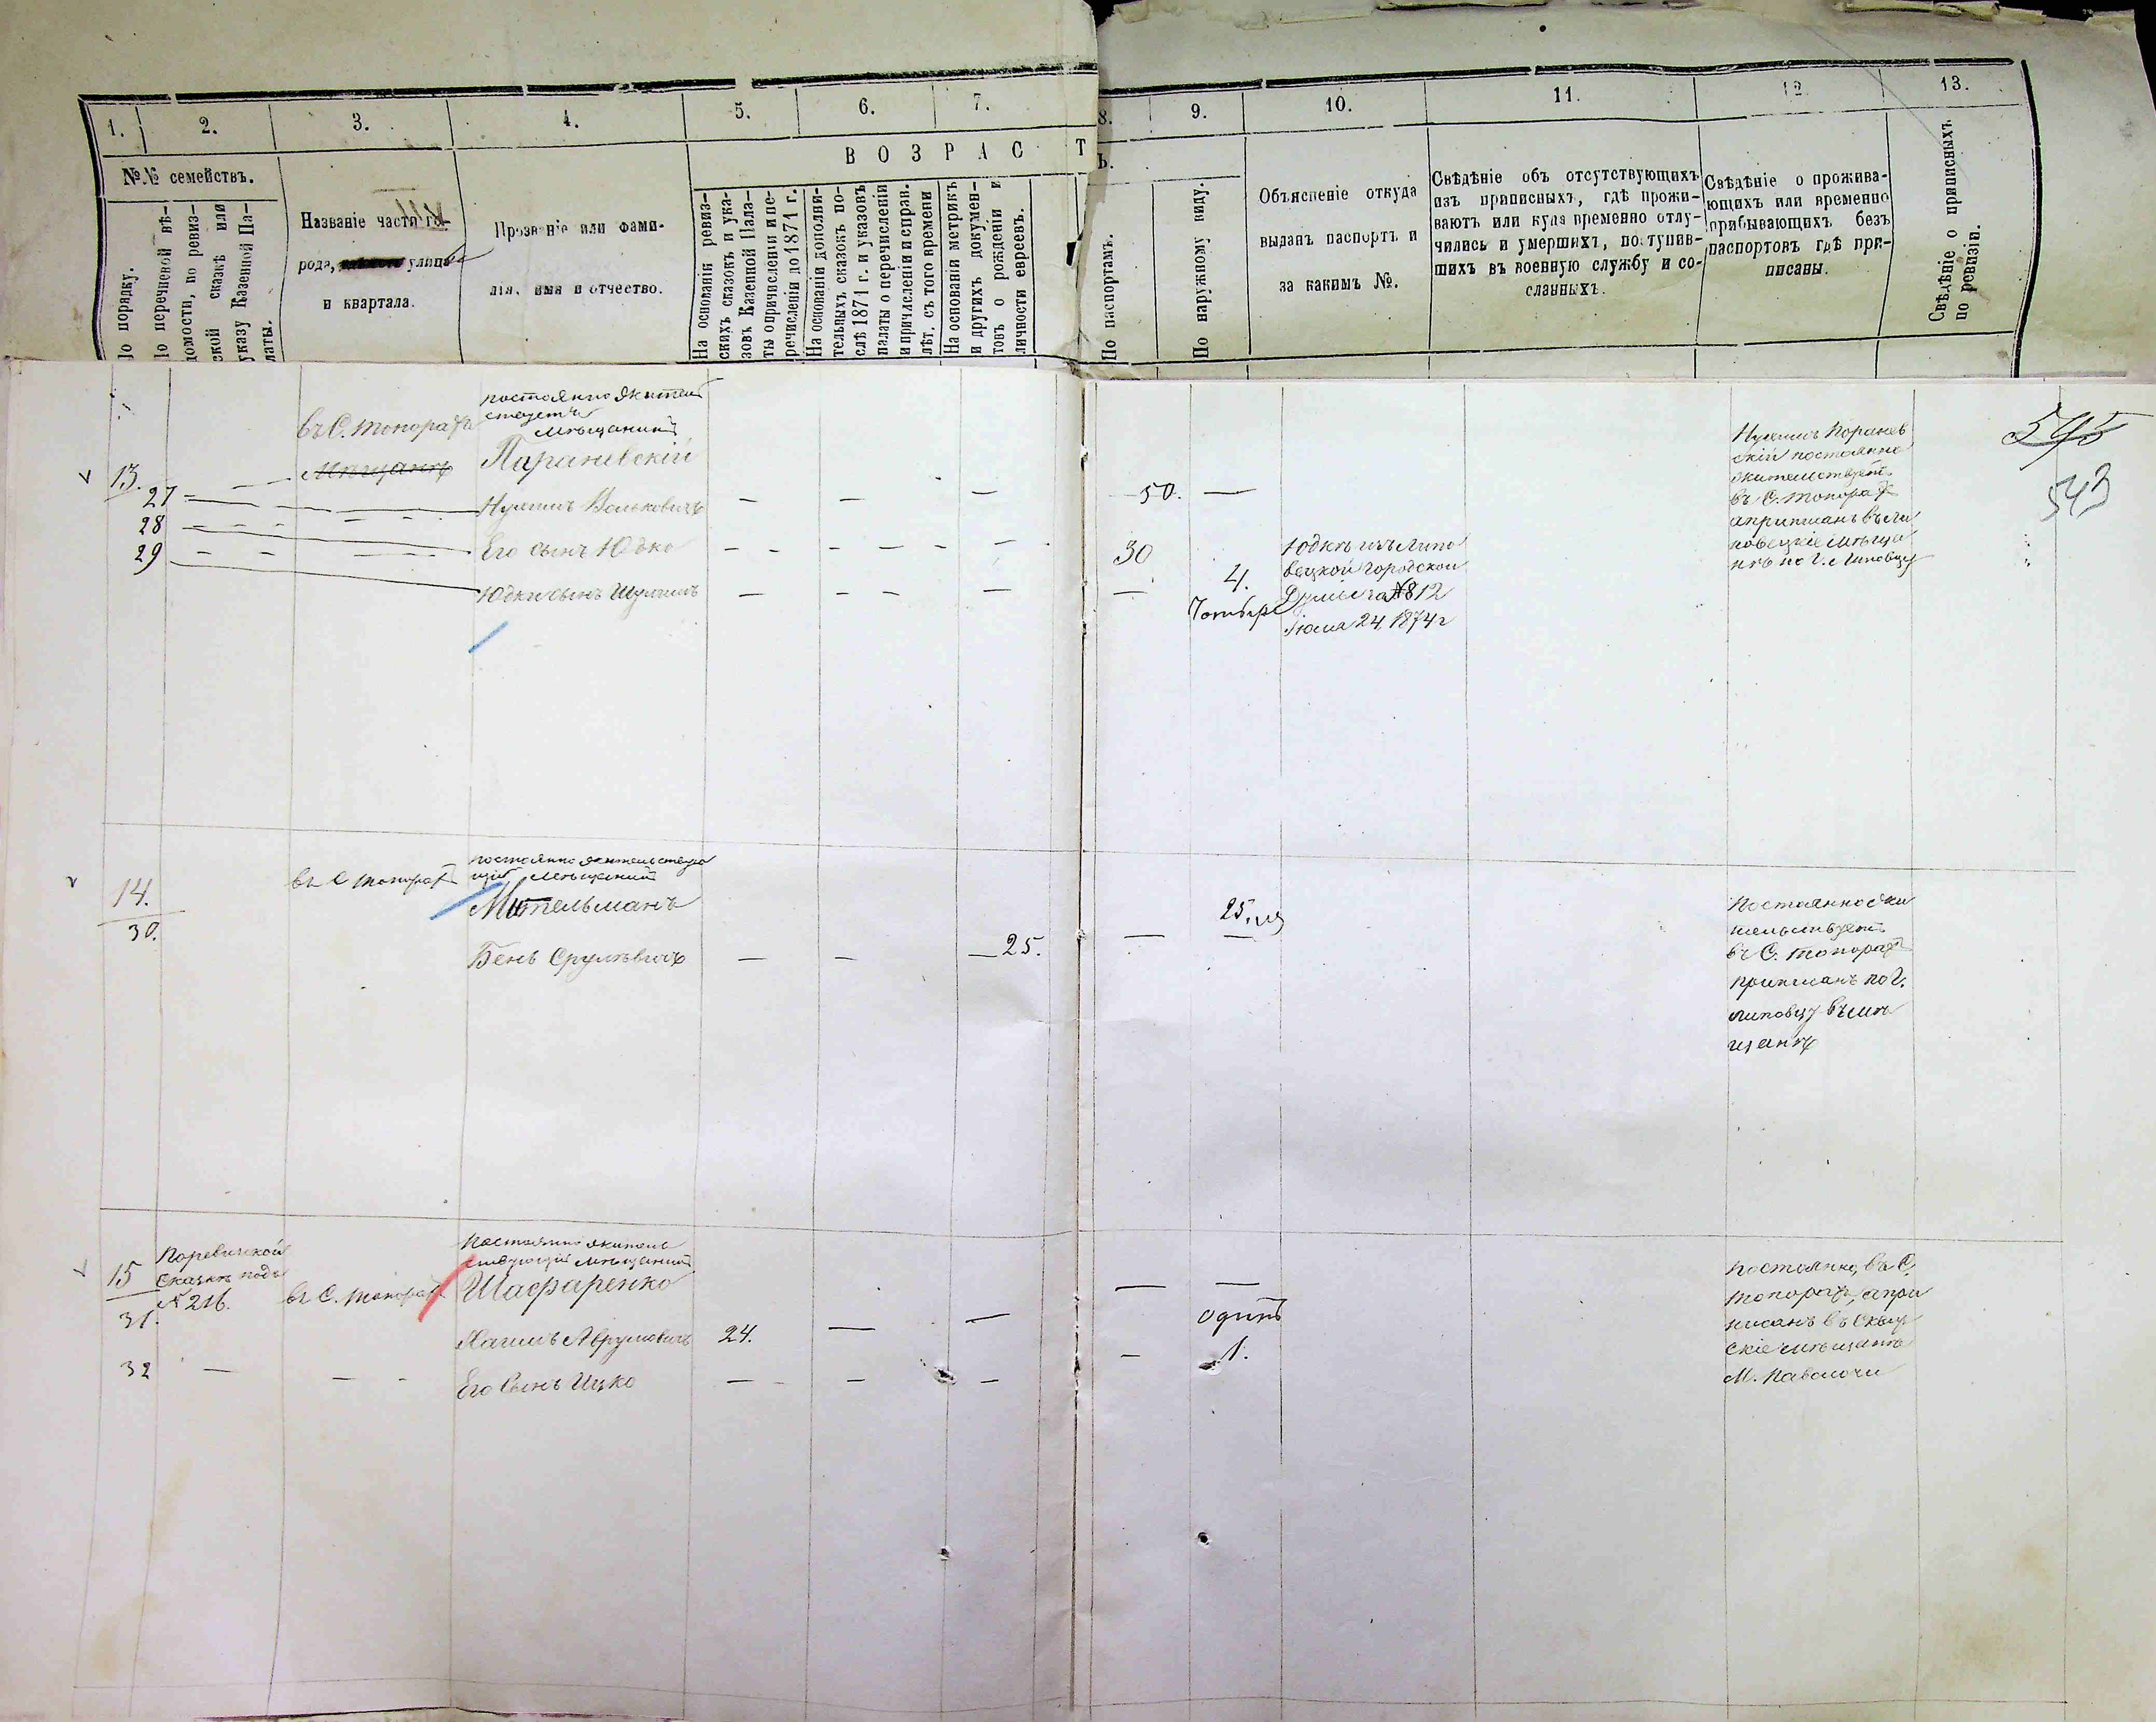 1. 2. 3. 4. 5. 6. 7. 8. 9. 10. 11. 12. 13.
№№ семействъ.
По порядку.
По перечневой вѣ-
домости, по ревиз-
ской сказкѣ или
указу Казенной Па-
латы.
Названіе части го-
рода, улицы
и квартала.
Прозваніе или фами-
лія, имя и отчество.
ВОЗРАСТЪ.
На основаніи ревиз-
скихъ сказокъ и ука-
зовъ Казенной Пала-
ты о причисленіи и пе-
речисленіи до 1871 г.
На основаніи дополни-
тельныхъ сказокъ по-
слѣ 1871 г. и указовъ
палаты о перечисленіи
и причисленіи и справ.
лѣт. съ того времени
На основаніи метрикъ
и другихъ докумен-
товъ о рожденіи и
личности евреевъ.
По паспортамъ.
По наружному виду.
Объясненіе откуда
выданъ паспортъ и
за какимъ №.
Свѣдѣніе объ отсутствующихъ
изъ приписныхъ, гдѣ прожи-
ваютъ или куда временно отлу-
чились и умершихъ, поступив-
шихъ въ военную службу и со-
сланныхъ.
Свѣдѣніе о прожива-
ющихъ или временно
прибывающихъ безъ
паспортовъ гдѣ при-
писаны.
Свѣдѣніе о приписныхъ
по ревизіи.
545
543
13.
въ С. Топорахъ
Мещанъ
постоянно жительствуетъ
Мѣщанинъ
Параневскій
27 Нухимъ Вольковичъ — — — 50. —
28 Его сынъ Юдко — — — 30
29 Юдки сынъ Шулимъ — — — — 4.
Чотыре
Юдкѣ изъ Липо
вецкой городской
Думы за №812
Іюля 24, 1874 г
Нухимъ Поранев
скій постоянно
жительствуетъ
въ С. Топорахъ
а приписанъ въ Ли
повецкіе мѣща
нѣ по Г. Липовцу
14.
30.
въ С Топорахъ
постоянно жительствую
щій мѣщанинъ
Мительманъ
Бень Срулевичъ — — 25. — 25.
Постоянно жи
тельствуетъ
въ С. Топорахъ
приписанъ по г.
Липовцу въ мѣ
щанѣ
15
31.
По ревизской
сказкѣ подъ
№ 216.
въ С. Топорахъ
Постоянно житель
ствующій мѣщанинъ
Шафаренко
Хаимъ Аврумовичъ 24. — — — —
32 — — Его сынъ Ицко — — — — одинъ
1.
Постоянно, въ С.
Топорахъ, а при
писанъ въ Сквир
скіе мѣщанѣ
М. Паволочи